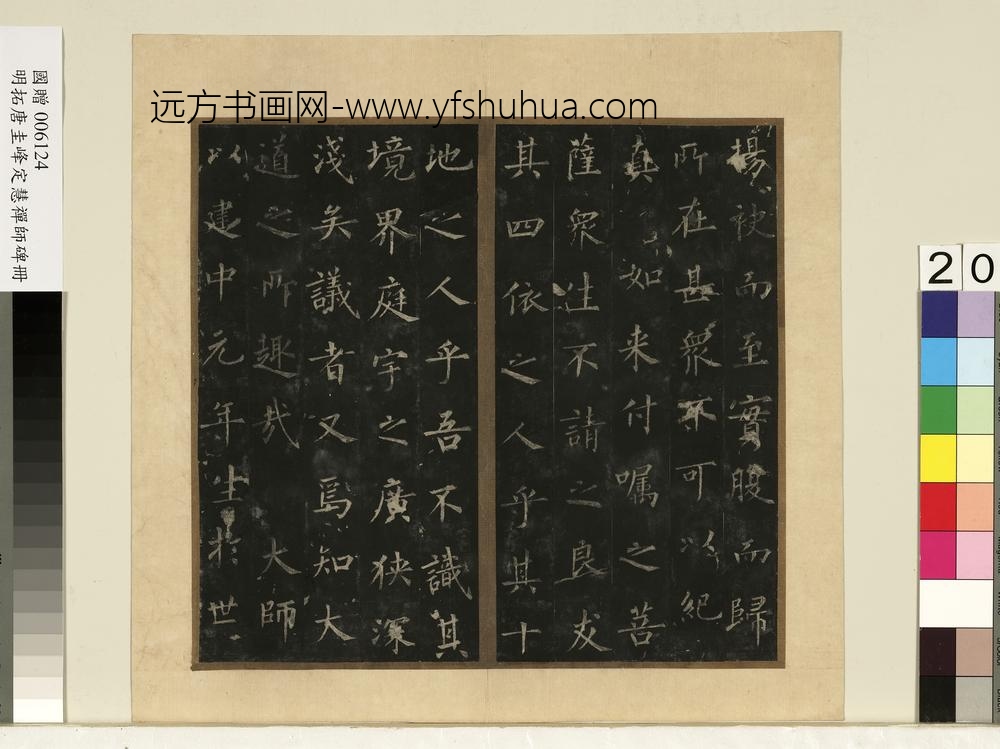 远方书画网-www.yfshuhua.com
國贈 006124
明拓唐圭峰定慧禪師碑冊
20
揚袂而至實腹而歸
所在甚衆不可以紀
真如来付嘱之菩
薩衆生不請之良友
其四依之人乎其十
地之人乎吾不識其
境界庭宇之廣狹深
淺矣議者又焉知大
道之所趣哉大師
以建中元年生於世